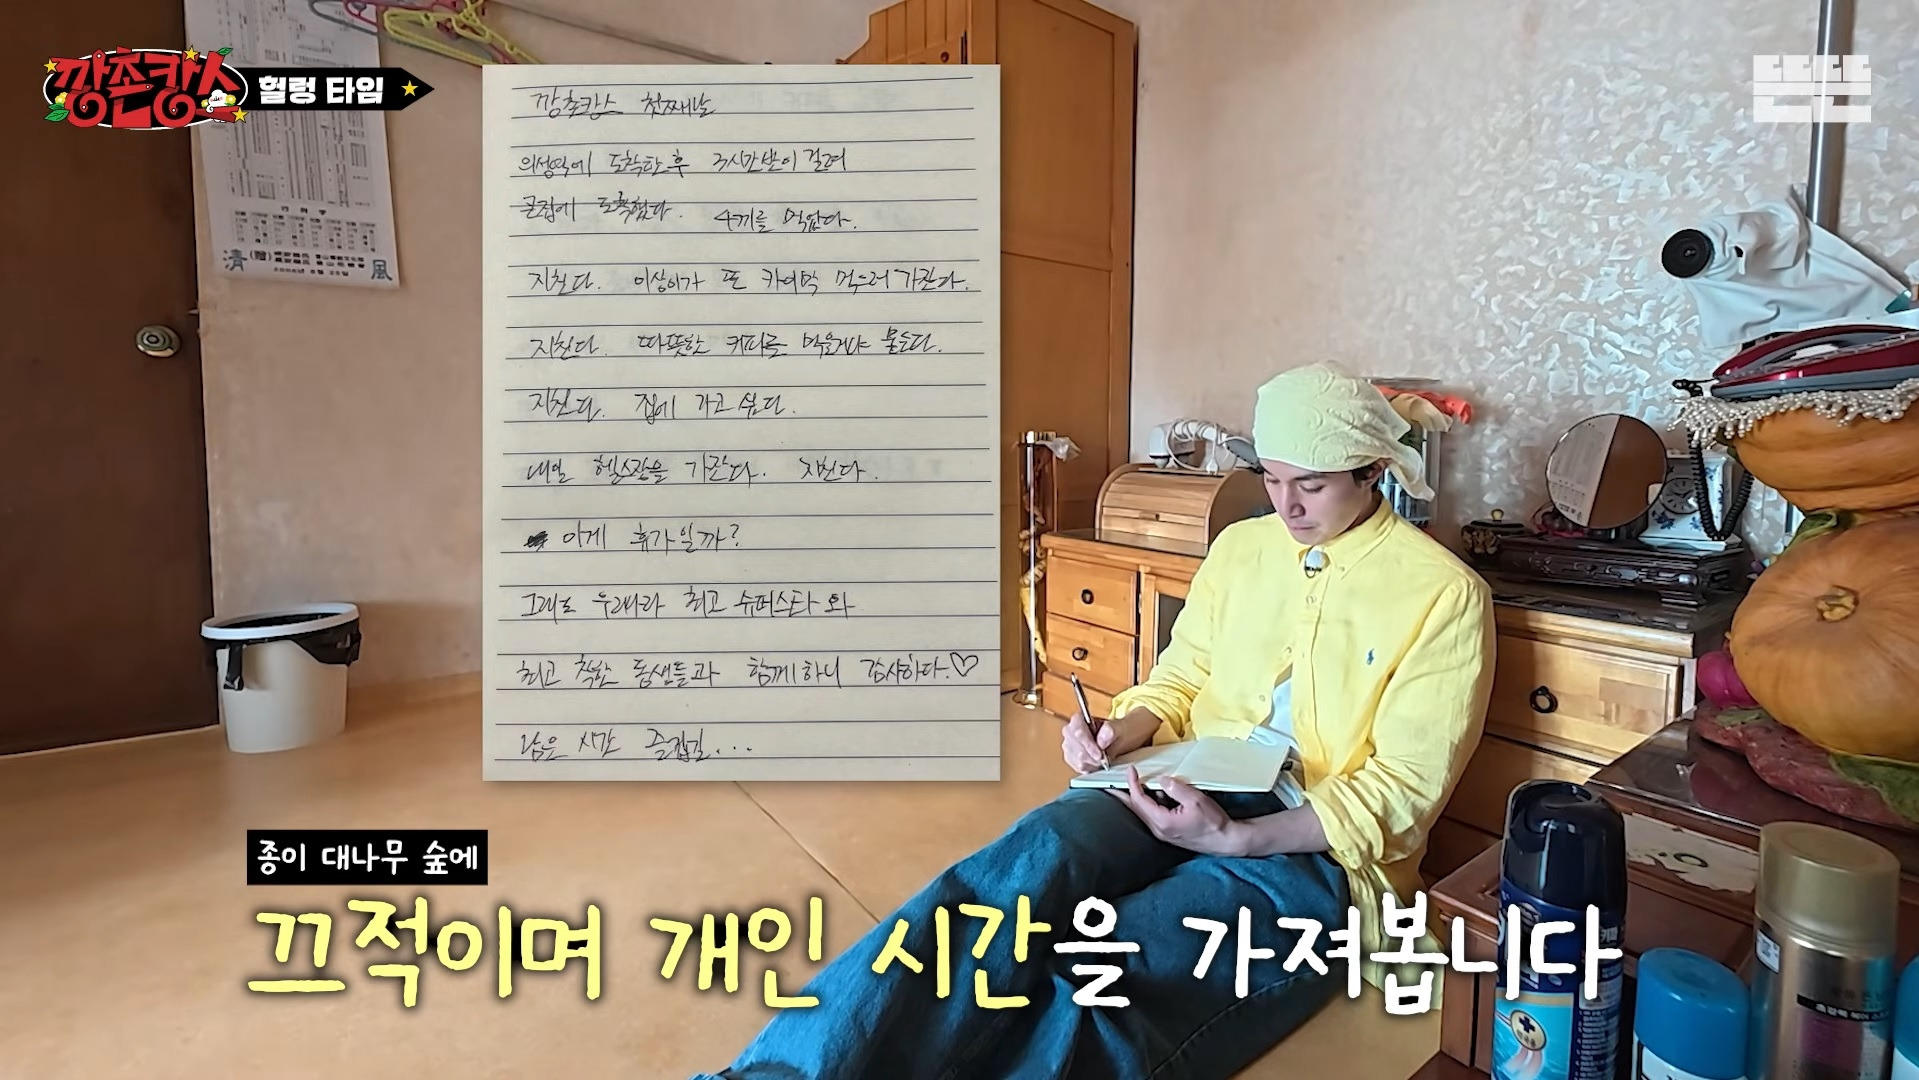 깡촌캉스 헐렁 타임
뜬뜬
清 (贈) 風
깡촌캉스 첫째날
의성역에 도착한 후 3시간반이 걸려
큰집에 도착했다. 4끼를 먹었다.
지친다. 이상이가 또 카이막 먹으러 가잔다.
지친다. 따뜻한 커피를 먹을거냐 묻는다.
지친다. 집에 가고 싶다.
내일 헬스장을 가잔다. 지친다.
이게 휴가일까?
그래도 우리나라 최고 슈퍼스타와
최고 착한 동생들과 함께하니 감사하다.♡
남은 시간 즐겁길...
종이 대나무 숲에
끄적이며 개인 시간을 가져봅니다